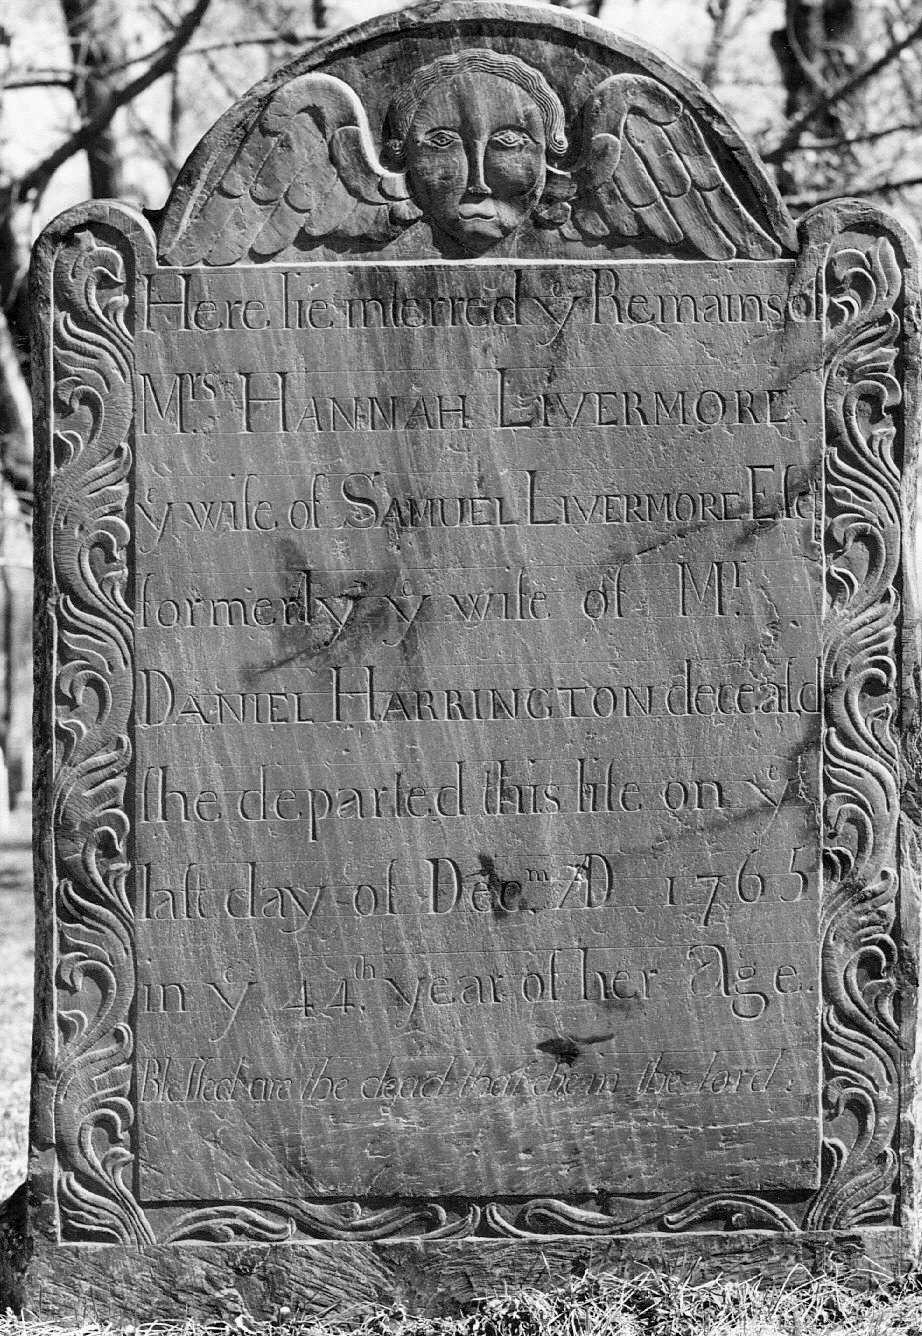 Here lie interred yͤ Remains of
Mʳˢ. HANNAH LIVERMORE
yͤ wife of SAMUEL LIVERMORE Eſq
formerly yͤ wife of Mʳ.
DANIEL HARRINGTON deceaſd
ſhe departed this life on yͤ
laſt day of Decᵐ. AD 1765
in yͤ 44ᵗʰ. year of her Age.
Bleſſed are the dead that die in the lord.